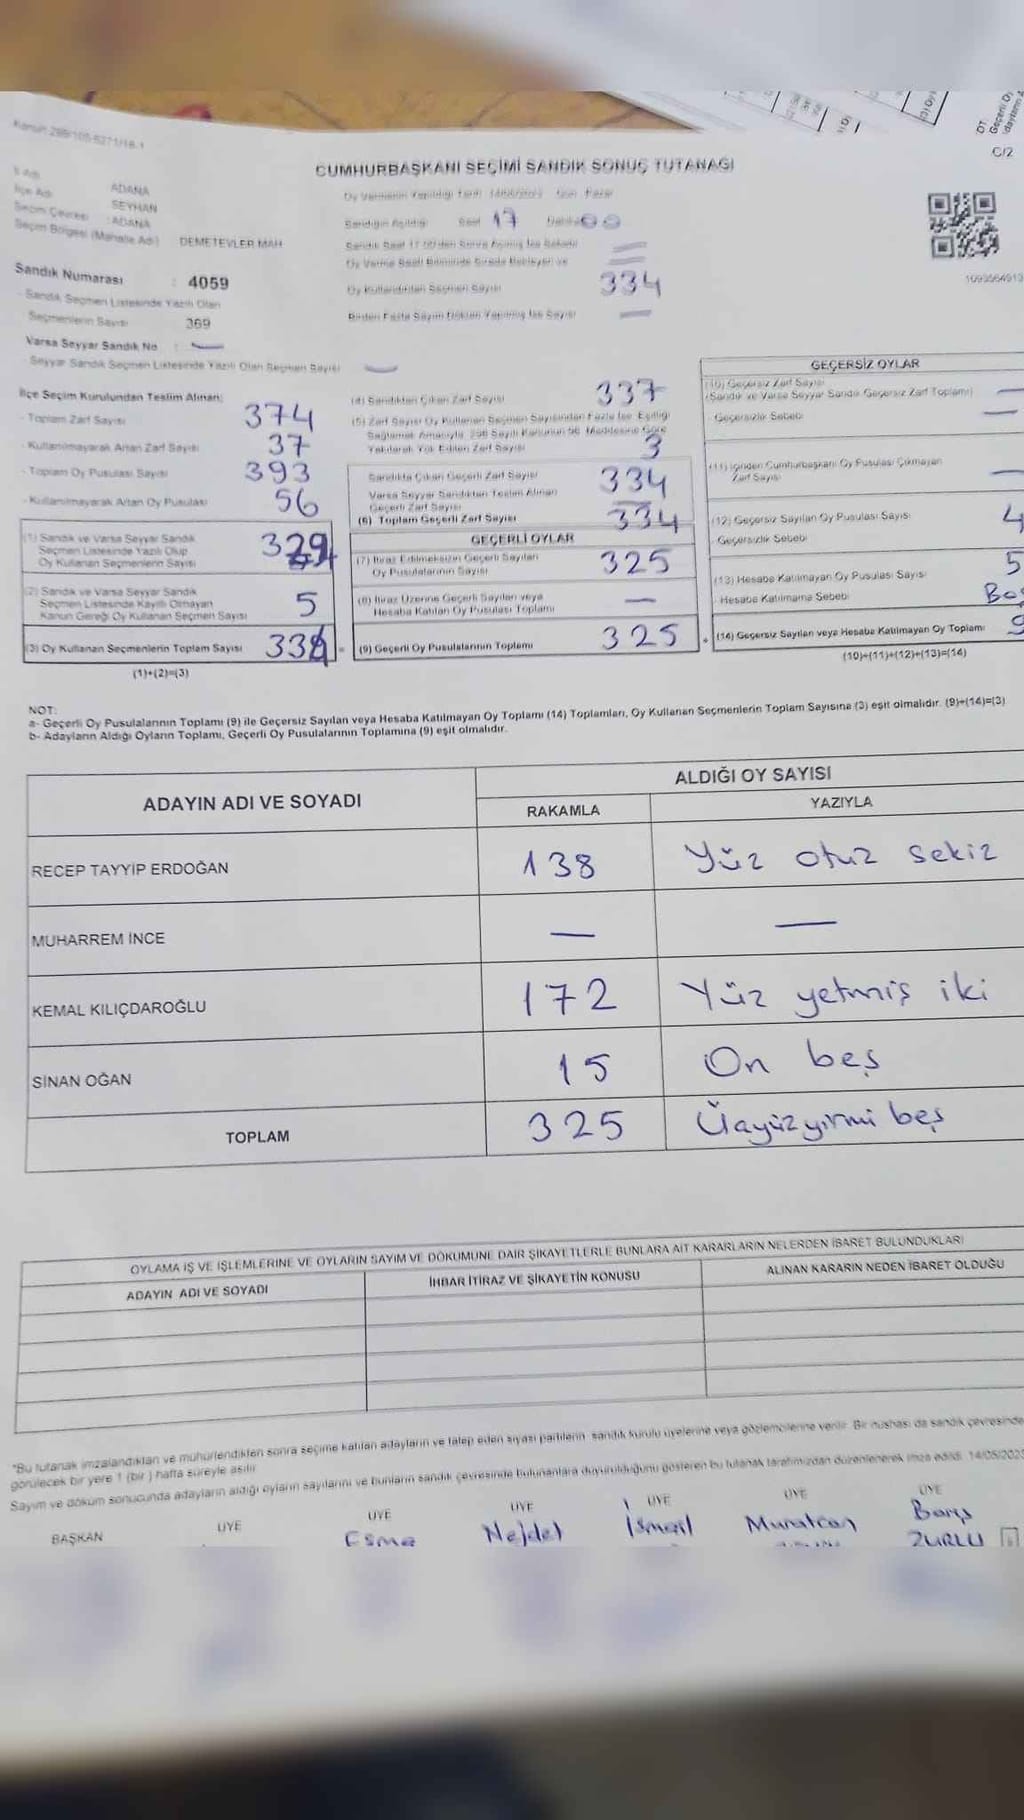 Kanun 298/105-5271/18.1
CUMHURBAŞKANI SEÇİMİ SANDIK SONUÇ TUTANAĞI
C/2
İlçe Adı
ADANA
SEYHAN
Seçim Çevresi : ADANA
Seçim Bölgesi (Mahalle Adı) DEMETEVLER MAH
Oy Vermenin Yapıldığı Tarih 14/05/2023 Gün Pazar
Sandığın Açıldığı Saat 17 Dakika 00
Sandık Numarası : 4059
Sandık Seçmen Listesinde Yazılı Olan
Seçmenlerin Sayısı 369
Varsa Seyyar Sandık No : —
Seyyar Sandık Seçmen Listesinde Yazılı Olan Seçmen Sayısı —
Oy Kullandırılan Seçmen Sayısı 334
Birden Fazla Sayım Döküm Yapılmış İse Sayısı —
İlçe Seçim Kurulundan Teslim Alınan:
- Toplam Zarf Sayısı 374
- Kullanılmayarak Artan Zarf Sayısı 37
- Toplam Oy Pusulası Sayısı 393
- Kullanılmayarak Artan Oy Pusulası 56
(1) Sandık ve Varsa Seyyar Sandık
Seçmen Listesinde Yazılı Olup
Oy Kullanan Seçmenlerin Sayısı 329
(2) Sandık ve Varsa Seyyar Sandık
Seçmen Listesinde Kayıtlı Olmayan
Kanun Gereği Oy Kullanan Seçmen Sayısı 5
(3) Oy Kullanan Seçmenlerin Toplam Sayısı 334
(1)+(2)=(3)
(4) Sandıktan Çıkan Zarf Sayısı 337
(5) Zarf Sayısı Oy Kullanan Seçmen Sayısından Fazla İse, Eşitliği
Sağlamak Amacıyla, 298 Sayılı Kanunun 98. Maddesine Göre
Yakılarak Yok Edilen Zarf Sayısı 3
Sandıkta Çıkan Geçerli Zarf Sayısı 334
Varsa Seyyar Sandıktan Teslim Alınan
Geçerli Zarf Sayısı —
(6) Toplam Geçerli Zarf Sayısı 334
GEÇERLİ OYLAR
(7) İtiraz Edilmeksizin Geçerli Sayılan
Oy Pusulalarının Sayısı 325
(8) İtiraz Üzerine Geçerli Sayılan veya
Hesaba Katılan Oy Pusulası Toplamı —
(9) Geçerli Oy Pusulalarının Toplamı 325
GEÇERSİZ OYLAR
(10) Geçersiz Zarf Sayısı
(Sandık ve Varsa Seyyar Sandık Geçersiz Zarf Toplamı) —
Geçersizlik Sebebi —
(11) İçinden Cumhurbaşkanı Oy Pusulası Çıkmayan
Zarf Sayısı —
(12) Geçersiz Sayılan Oy Pusulası Sayısı 4
- Geçersizlik Sebebi
(13) Hesaba Katılmayan Oy Pusulası Sayısı 5
Hesaba Katılmama Sebebi
(14) Geçersiz Sayılan veya Hesaba Katılmayan Oy Toplamı 9
(10)+(11)+(12)+(13)=(14)
NOT:
a- Geçerli Oy Pusulalarının Toplamı (9) ile Geçersiz Sayılan veya Hesaba Katılmayan Oy Toplamı (14) Toplamları, Oy Kullanan Seçmenlerin Toplam Sayısına (3) eşit olmalıdır. (9)+(14)=(3)
b- Adayların Aldığı Oyların Toplamı, Geçerli Oy Pusulalarının Toplamına (9) eşit olmalıdır.
ADAYIN ADI VE SOYADI
ALDIĞI OY SAYISI
RAKAMLA YAZIYLA
RECEP TAYYİP ERDOĞAN 138 Yüz otuz sekiz
MUHARREM İNCE — —
KEMAL KILIÇDAROĞLU 172 Yüz yetmiş iki
SİNAN OĞAN 15 On beş
TOPLAM 325 Üçyüzyirmi beş
OYLAMA İŞ VE İŞLEMLERİNE VE OYLARIN SAYIM VE DÖKÜMÜNE DAİR ŞİKAYETLERLE BUNLARA AİT KARARLARIN NELERDEN İBARET BULUNDUKLARI
ADAYIN ADI VE SOYADI İHBAR İTİRAZ VE ŞİKAYETİN KONUSU ALINAN KARARIN NEDEN İBARET OLDUĞU
*Bu tutanak imzalandıktan ve mühürlendikten sonra seçime katılan adayların ve talep eden siyasi partilerin sandık kurulu üyelerine veya gözlemcilerine verilir. Bir nüshası da sandık çevresinde
görülecek bir yere 1 (bir) hafta süreyle asılır.
Sayım ve döküm sonucunda adayların aldığı oyların sayılarını ve bunların sandık çevresinde bulunanlara duyurulduğunu gösteren bu tutanak tarafımızdan düzenlenerek imza edildi. 14/05/202
BAŞKAN ÜYE ÜYE ÜYE ÜYE ÜYE ÜYE
Esma Nejdet İsmail Muratcan Barış
ZURLU